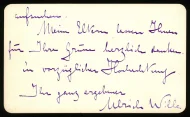 aufsuchen.
Meine Eltern lassen Ihnen
für Ihre Grüsse herzlich danken
in vorzüglicher Hochachtung
Ihr ganz ergebener
Ulrich Wille